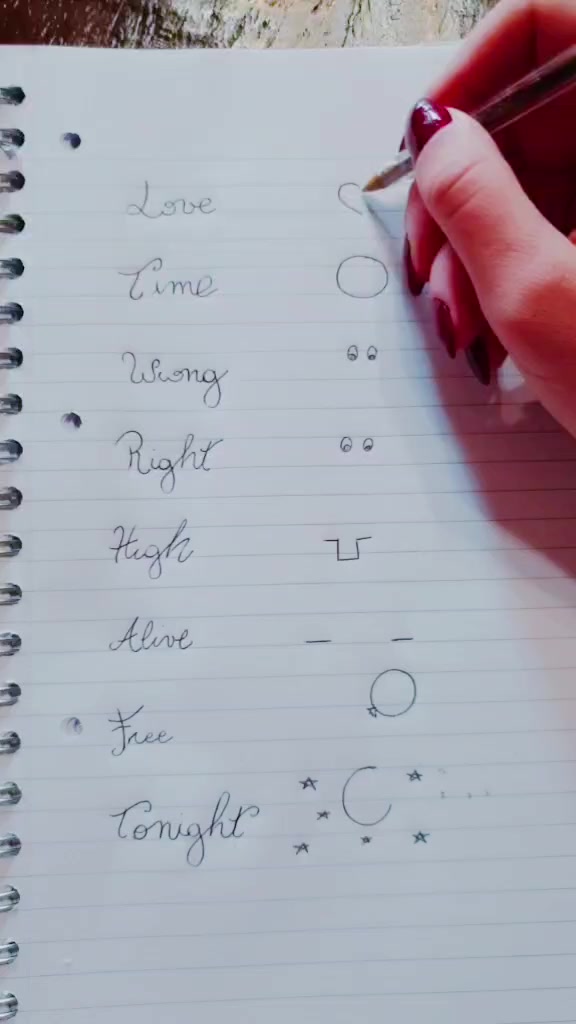 Love
Time
Wrong
Right
High
Alive
Free
Tonight